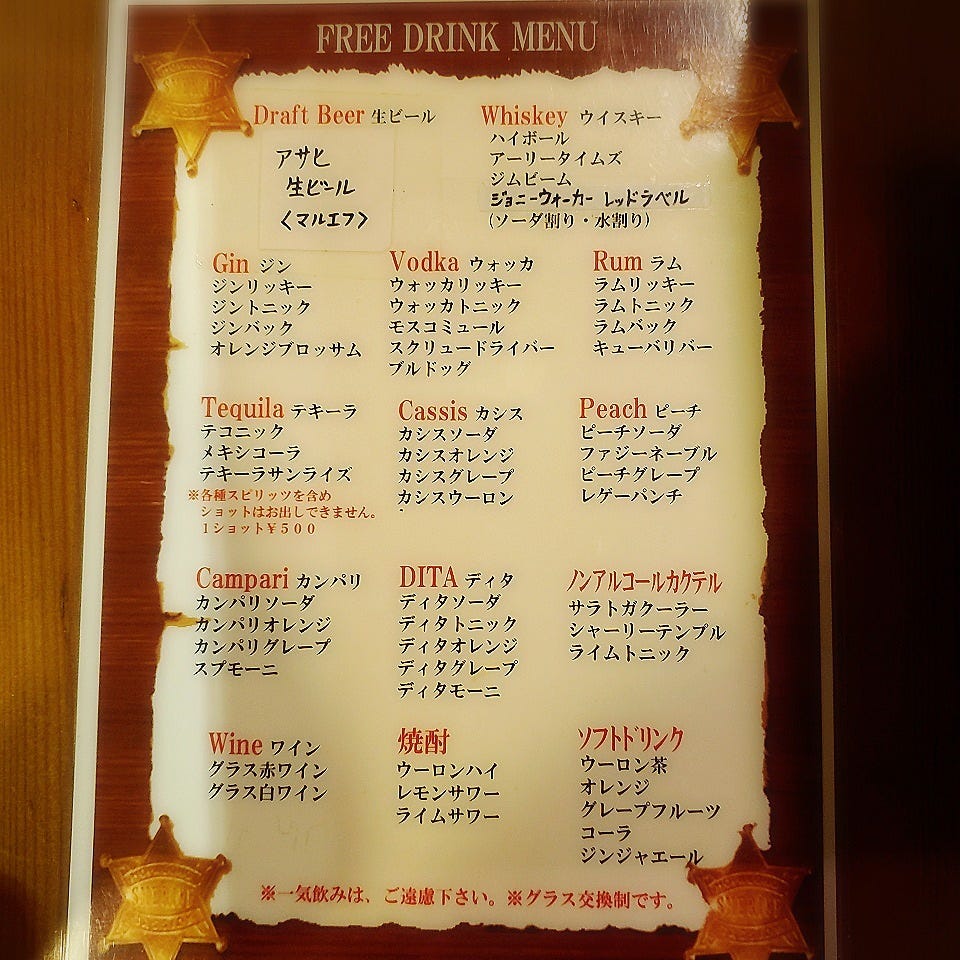 FREE DRINK MENU
Draft Beer 生ビール
アサヒ
生ビール
〈マルエフ〉
Whiskey ウイスキー
ハイボール
アーリータイムズ
ジムビーム
ジョニーウォーカー レッドラベル
(ソーダ割り・水割り)
Gin ジン
ジンリッキー
ジントニック
ジンバック
オレンジブロッサム
Vodka ウォッカ
ウォッカリッキー
ウォッカトニック
モスコミュール
スクリュードライバー
ブルドッグ
Rum ラム
ラムリッキー
ラムトニック
ラムバック
キューバリバー
Tequila テキーラ
テコニック
メキシコーラ
テキーラサンライズ
※各種スピリッツを含め
ショットはお出しできません。
1ショット¥500
Cassis カシス
カシスソーダ
カシスオレンジ
カシスグレープ
カシスウーロン
Peach ピーチ
ピーチソーダ
ファジーネーブル
ピーチグレープ
レゲーパンチ
Campari カンパリ
カンパリソーダ
カンパリオレンジ
カンパリグレープ
スプモーニ
DITA ディタ
ディタソーダ
ディタトニック
ディタオレンジ
ディタグレープ
ディタモーニ
ノンアルコールカクテル
サラトガクーラー
シャーリーテンプル
ライムトニック
Wine ワイン
グラス赤ワイン
グラス白ワイン
焼酎
ウーロンハイ
レモンサワー
ライムサワー
ソフトドリンク
ウーロン茶
オレンジ
グレープフルーツ
コーラ
ジンジャエール
※一気飲みは、ご遠慮下さい。※グラス交換制です。